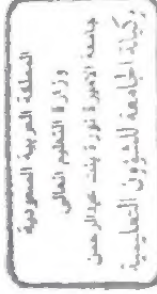 المملكة العربية السعودية
وزارة التعليم العالي
جامعة الأميرة نورة بنت عبدالرحمن
وكيلة الجامعة للشؤون التعليمية